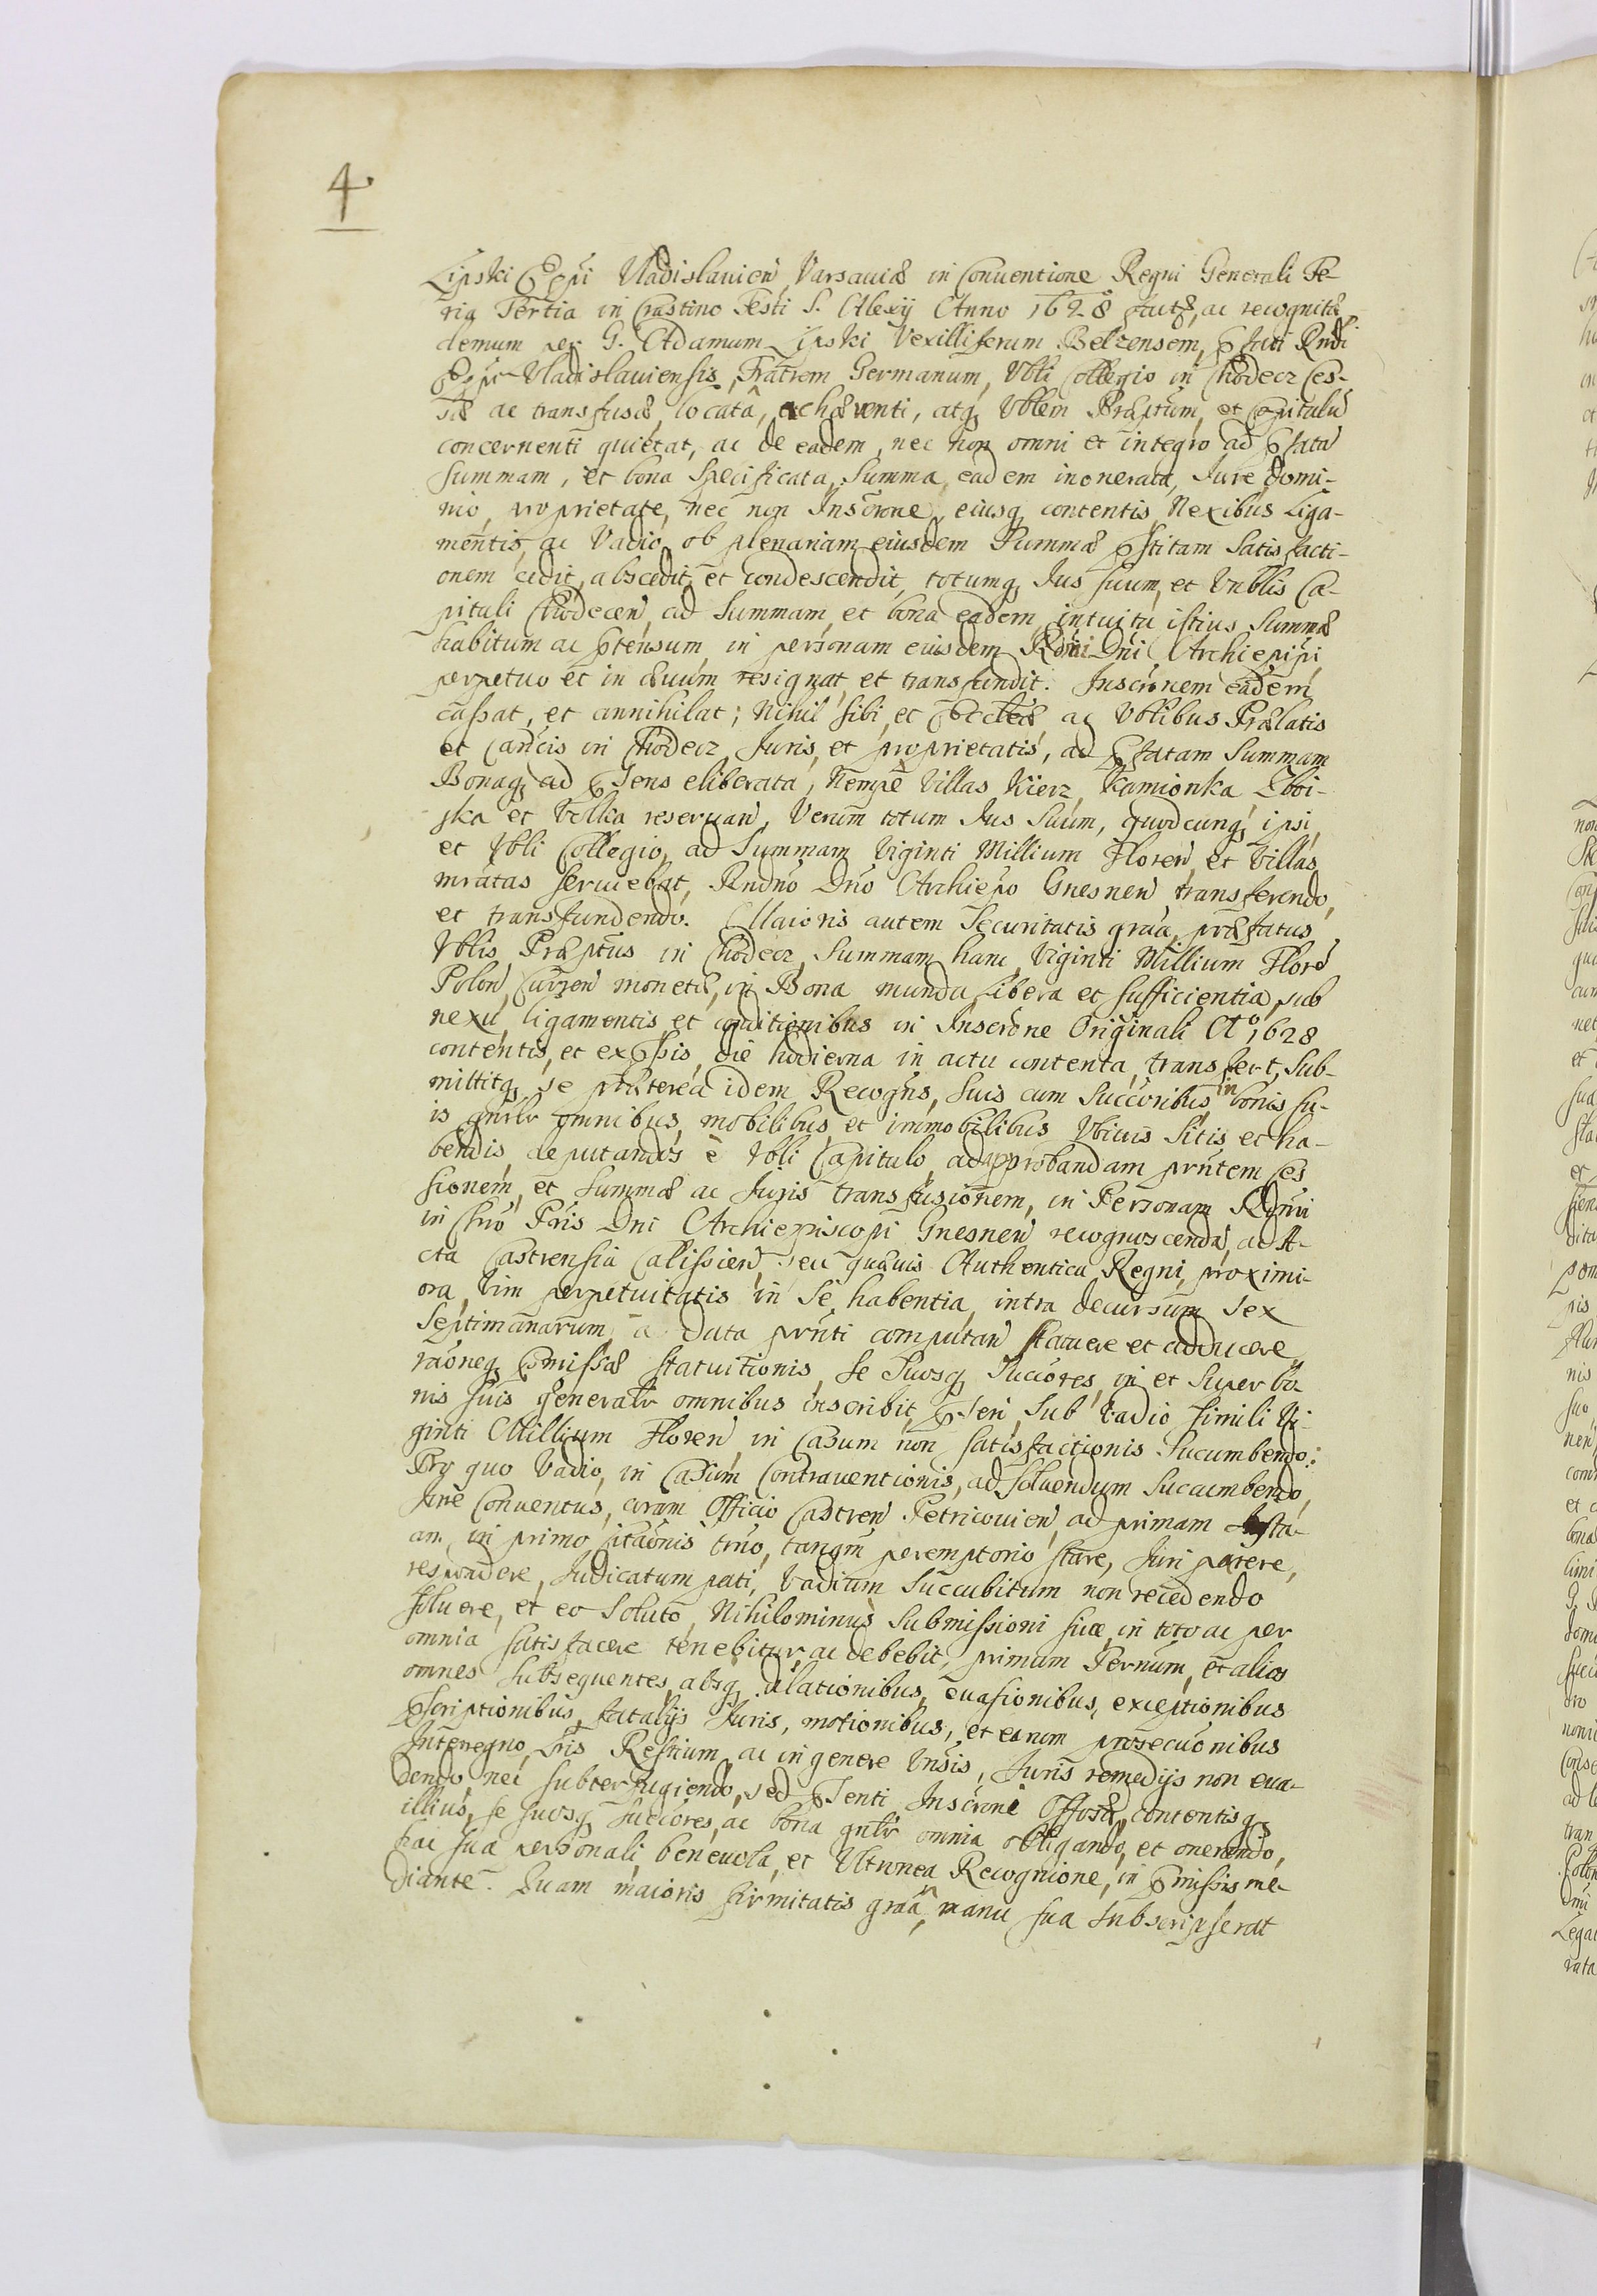 4.
Lipski Eppi Vladislavien̄ Varsaviæ in Conventione Regni Generali Fe-
ria Tertia in Crastino Festi S. Alexij Anno 1628 factæ, ac recognitæ
demum per G. Adamum Lipski Vexilliferum Belzensem, pfati Rndi
Eppi Vladislaviensis Fratrem Germanum, Vbli Collegio in Chodecz ces-
sæ ac transfusæ, locatâ, et chærenti, atq Vblem Præptum, et Capitulū
concernenti quietat, ac de eadem, nec non omni et integro ad pfatā
summam, et bona specificata, Summa eadem inonerata, Jure domi-
nio, proprietate, nec non Inscrōne, eiusq contentis, Nexibus Liga-
mentis, ac Vadio, ob plenariam eiusdem Summæ pstitam Satisfacti-
onem cedit, abscedit, et condescendit, totumq Jus suum, et Vnblis Ca-
pituli Chodecen̄, ad Summam, et bona eadem, intuitu istius Summæ
habitum ac ptensum, in personam eiusdem Rdni Dni Archiepipi,
perpetuo et in ævum resignat, et transfundit. Inscrōnem eadem
cassat, et annihilat; Nihil sibi, et Ecclæ ac Vblibus Prælatis
et Cancis in Chodecz, Juris, et proprietatis, ad pfatam Summam
Bonaq ad psens eliberata, nempè Villas Kierz, Kamionka Zboi-
ska et Volka reservan̄, Verum totum Jus Suum, quodcunq, ipsi,
et Vbli Collegio, ad Summam Viginti Millium Floren̄, et Villas
mratas serviebat, Rndno Dno Archiepo Gnesnen̄ transferendo,
et transfundendo. Maioris autem Securitatis graā, præfatus
Vblis Præptus in Chodecz, Summam hanc Viginti Millium Floren̄
Polon̄, Curren̄ monetæ, in Bona munda, Libera et sufficientia, sub
nexu, ligamentis, et conditionibus in Inscrōne Originali Aº 1628
contentis, et expssis, die hodierna in actu contenta, transfert, Sub-
mittitq se præterea idem Recogns, Suis cum Succōribus, in bonis su-
is gnrlr omnibus, mobilibus, et immobilibus Vbivis Sitis et ha-
bendis, deputandos è Vbli Capitulo, ad approbandam prntem ces
sionem, et Summæ ac Juris transfusionem, in Personam Rdmi
in Chro Pris Dni Archiepiscopi Gnesnen̄ recognoscendā, ad A-
cta Castrensia Calissien̄, seu quævis Authentica Regni, proximi-
ora, Vim perpetuitatis in se habentia, intra decursum sex
Septimanarum, à data prnti computan̄ statuere et adducere
rāoneq pmissæ statuitionis, se Suosq Succōres, in et Super bo-
nis Suis generalr omnibus inscribit, psen̄ Sub Vadio simili Vi-
ginti Millium Floren̄, in Casum non satisfactionis Sucumbendo:
Pro quo Vadio, in Casum Contraventionis, ad solvendum Succumbendo,
Jure Conventus, coram Officio Castren̄ Petricovien̄, ad primam Insta-
am, in primo citaōnis trno, tanqm peremptorio stare, Juri parere,
respondere, Judicatum pati, Vadium Succubitum non recedendo
solvere, et eo Soluto, Nihilominus Submissioni suæ, in toto ac per
omnia satisfacere tenebitur, ac debebit, primum Ternum, et alios
omnes subsequentes, absq dilationibus, evasionibus, exceptionibus
pscriptionibus, fatalijs Juris, motionibus, et earum prosecuōnibus
Interegno, Lris Restium, ac in genere Vnsis, Juris remedijs non eva-
dendo, nec subterfugiendo, sed psenti Inscrōni Offosæ, contentisq
illius, se suosq Succōres, ac bona gnlr omnia obligando, et onerando,
hac sua personali, benevola, et Vltronea Recognione, in pmissis me-
diante. Quam maioris firmitatis graā, manu sua subscripserat